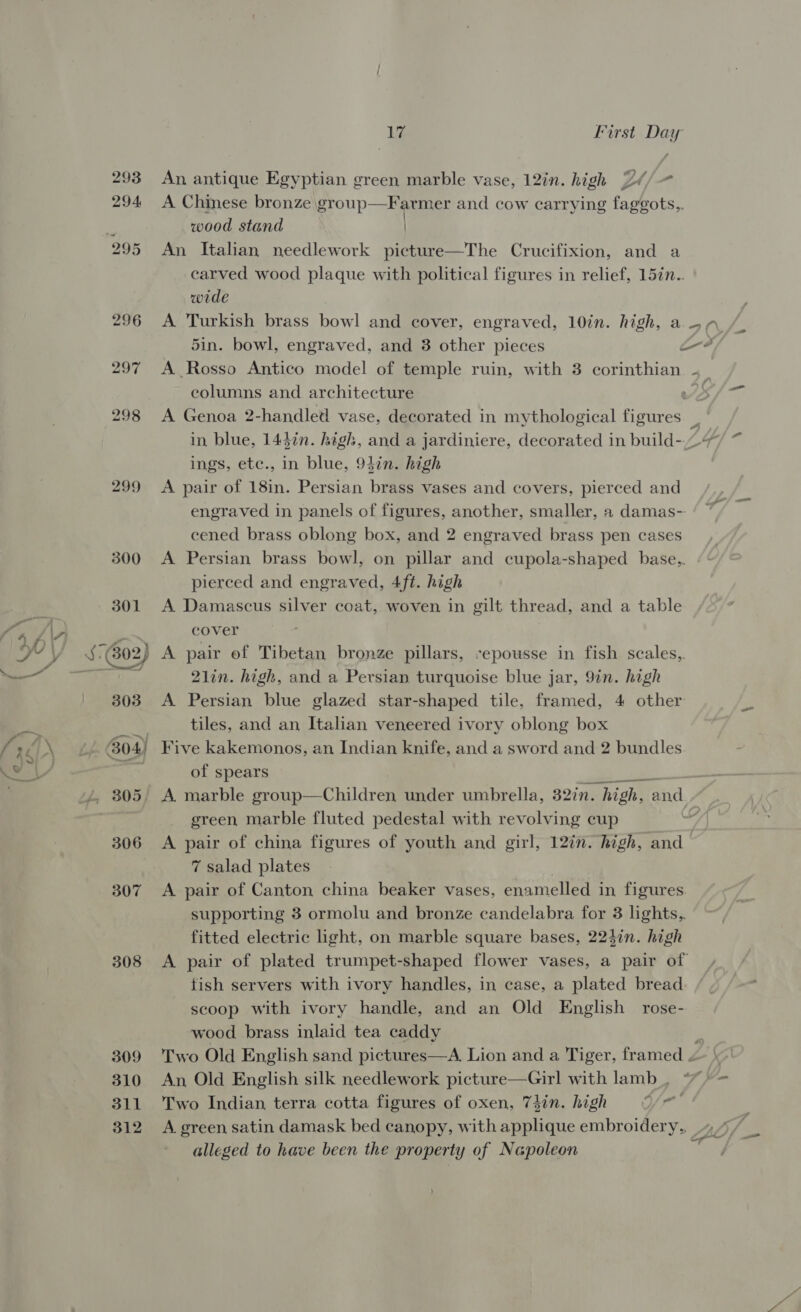 17 First Day
293 An antique Egyptian green marble vase, 12in. high
294 A Chinese bronze group—Farmer and cow carrying faggots,
wood stand
295 An Italian needlework picture—The Crucifixion, and a
carved wood plaque with political figures in relief, 15in.
wide
296 A Turkish brass bowl and cover, engraved, 10in. high, a
5in. bowl, engraved, and 3 other pieces
297 A Rosso Antico model of temple ruin, with 3 corinthian
columns and architecture
298 A Genoa 2-handled vase, decorated in mythological figures
in blue, 14½in. high, and a jardiniere, decorated in build-
ings, etc., in blue, 9½in. high
299 A pair of 18in. Persian brass vases and covers, pierced and
engraved in panels of figures, another, smaller, a damas-
cened brass oblong box, and 2 engraved brass pen cases
300 A Persian brass bowl, on pillar and cupola-shaped base,
pierced and engraved, 4ft. high
301 A Damascus silver coat, woven in gilt thread, and a table
cover
302 A pair of Tibetan bronze pillars, repousse in fish scales,
21in. high, and a Persian turquoise blue jar, 9in. high
303 A Persian blue glazed star-shaped tile, framed, 4 other
tiles, and an Italian veneered ivory oblong box
304 Five kakemonos, an Indian knife, and a sword and 2 bundles
of spears
305 A marble group—Children under umbrella, 32in. high, and
green marble fluted pedestal with revolving cup
306 A pair of china figures of youth and girl, 12in. high, and
7 salad plates
307 A pair of Canton china beaker vases, enamelled in figures
supporting 3 ormolu and bronze candelabra for 3 lights,
fitted electric light, on marble square bases, 22½in. high
308 A pair of plated trumpet-shaped flower vases, a pair of
fish servers with ivory handles, in case, a plated bread
scoop with ivory handle, and an Old English rose-
wood brass inlaid tea caddy
309 Two Old English sand pictures—A Lion and a Tiger, framed
310 An Old English silk needlework picture—Girl with lamb
311 Two Indian terra cotta figures of oxen, 7½in. high
312 A green satin damask bed canopy, with applique embroidery,
alleged to have been the property of Napoleon